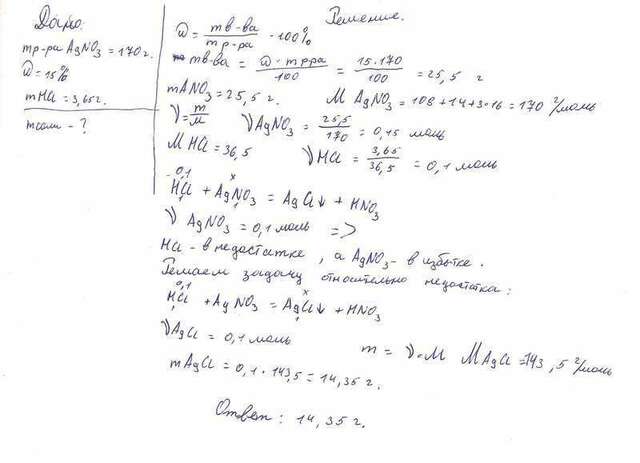 Дано:
mр-ра AgNO3 = 170 г.
ω = 15%
mHCl = 3,65 г.
mсоли - ?
Решение.
ω = mв-ва / mр-ра · 100%
mв-ва = ω · mр-ра / 100 = 15 · 170 / 100 = 25,5 г
mANO3 = 25,5 г. M AgNO3 = 108 + 14 + 3·16 = 170 г/моль
ν = m/M ν AgNO3 = 25,5 / 170 = 0,15 моль
M HCl = 36,5 ν HCl = 3,65 / 36,5 = 0,1 моль
0,1 x
HCl + AgNO3 = AgCl↓ + HNO3
1 1
ν AgNO3 = 0,1 моль =>
HCl - в недостатке, а AgNO3 - в избытке.
Решаем задачу относительно недостатка:
0,1 x
HCl + AgNO3 = AgCl↓ + HNO3
1 1
ν AgCl = 0,1 моль
m = ν · M MAgCl = 143,5 г/моль
mAgCl = 0,1 · 143,5 = 14,35 г.
Ответ: 14,35 г.